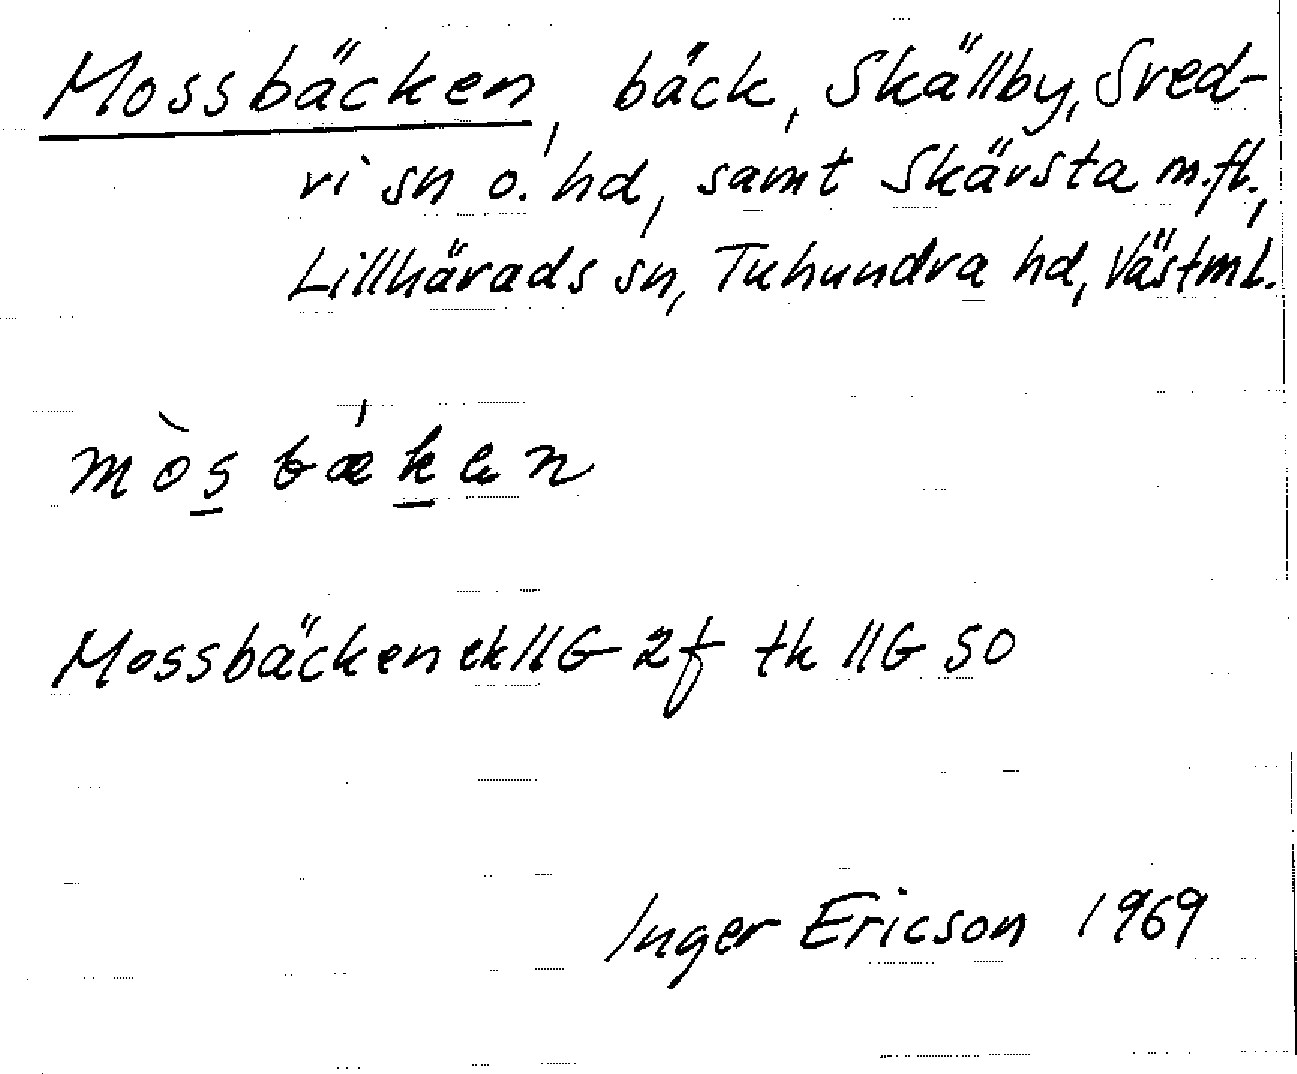 Mossbäcken, bäck, Skällby, Sved-
vi sn o. hd, samt Skävsta m.fl.,
Lillhärads sn, Tuhundra hd, Västml.
mòsbækən
Mossbäcken ek 11G 2f tk 11G SO
Inger Ericson 1969